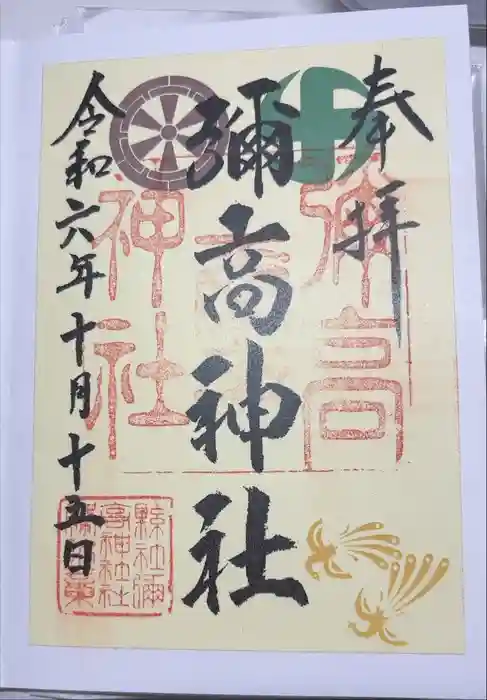 奉拝
彌高神社
令和六年十月十五日
彌高
神社
縣社彌
高神社社